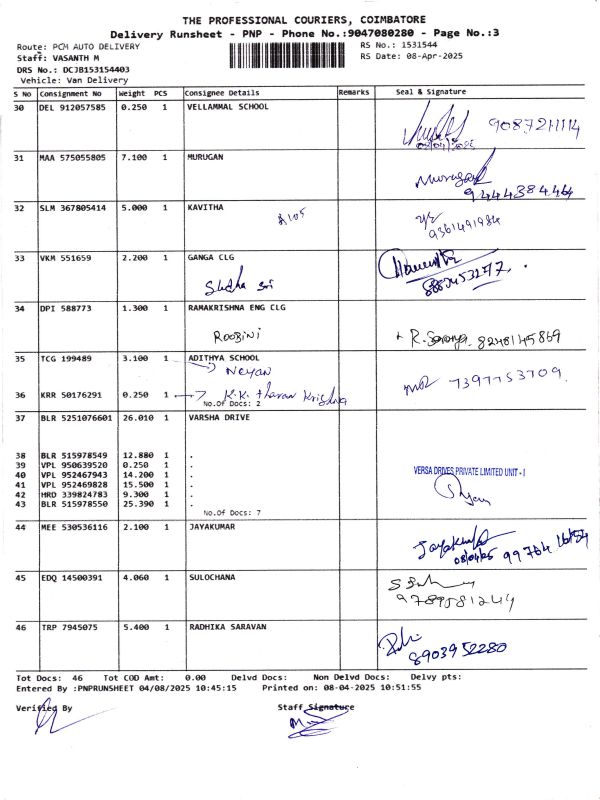 THE PROFESSIONAL COURIERS, COIMBATORE
Delivery Runsheet - PNP - Phone No.:9047080280 - Page No.:3
Route: PCM AUTO DELIVERY RS No.: 1531544
Staff: VASANTH M RS Date: 08-Apr-2025
DRS No.: DCJB153154403
Vehicle: Van Delivery
S No Consignment No Weight PCS Consignee Details Remarks Seal & Signature
30 DEL 912057585 0.250 1 VELLAMMAL SCHOOL
9087211114
31 MAA 575055805 7.100 1 MURUGAN
Murugan
9444384464
32 SLM 367805414 5.000 1 KAVITHA
9361491984
33 VKM 551659 2.200 1 GANGA CLG
Sri
34 DPI 588773 1.300 1 RAMAKRISHNA ENG CLG
ROOBINI R. 8248145869
35 TCG 199489 3.100 1 ADITHYA SCHOOL
Neyan
7397753709
36 KRR 50176291 0.250 1 K.K. tharan Krishna
No.Of Docs: 2
37 BLR 5251076601 26.010 1 VARSHA DRIVE
38 BLR 515978549 12.880 1 .
39 VPL 950639520 0.250 1 .
40 VPL 952467943 14.200 1 .
41 VPL 952469828 15.500 1 .
42 HRD 339824783 9.300 1 .
43 BLR 515978550 25.390 1 .
VERSA DRIVES PRIVATE LIMITED UNIT - I
No.Of Docs: 7
44 MEE 530536116 2.100 1 JAYAKUMAR
08/04/25
45 EDQ 14500391 4.060 1 SULOCHANA
9789581244
46 TRP 7945075 5.400 1 RADHIKA SARAVAN
8903952280
Tot Docs: 46 Tot COD Amt: 0.00 Delvd Docs: Non Delvd Docs: Delvy pts:
Entered By :PNPRUNSHEET 04/08/2025 10:45:15 Printed on: 08-04-2025 10:51:55
Verified By Staff Signature